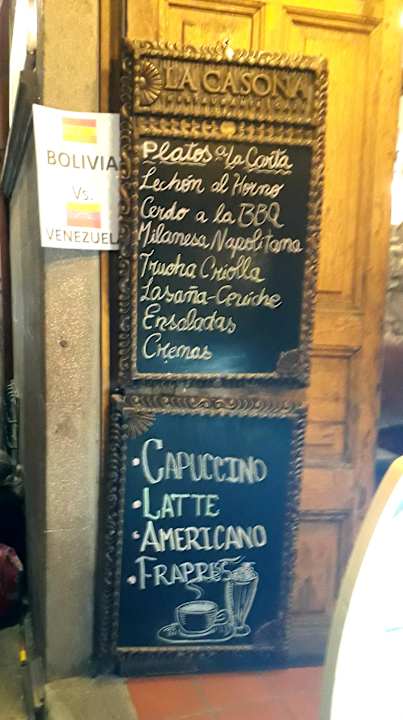 LA CASONA
RESTAURANTE CAFE
BOLIVIA
Vs.
VENEZUEL
Platos a la Carta
Lechón al Horno
Cerdo a la BBQ
Milanesa Napolitana
Trucha Criolla
Lasaña-Ceviche
Ensaladas
Cremas
• CAPUCCINO
• LATTE
• AMERICANO
• FRAPPES